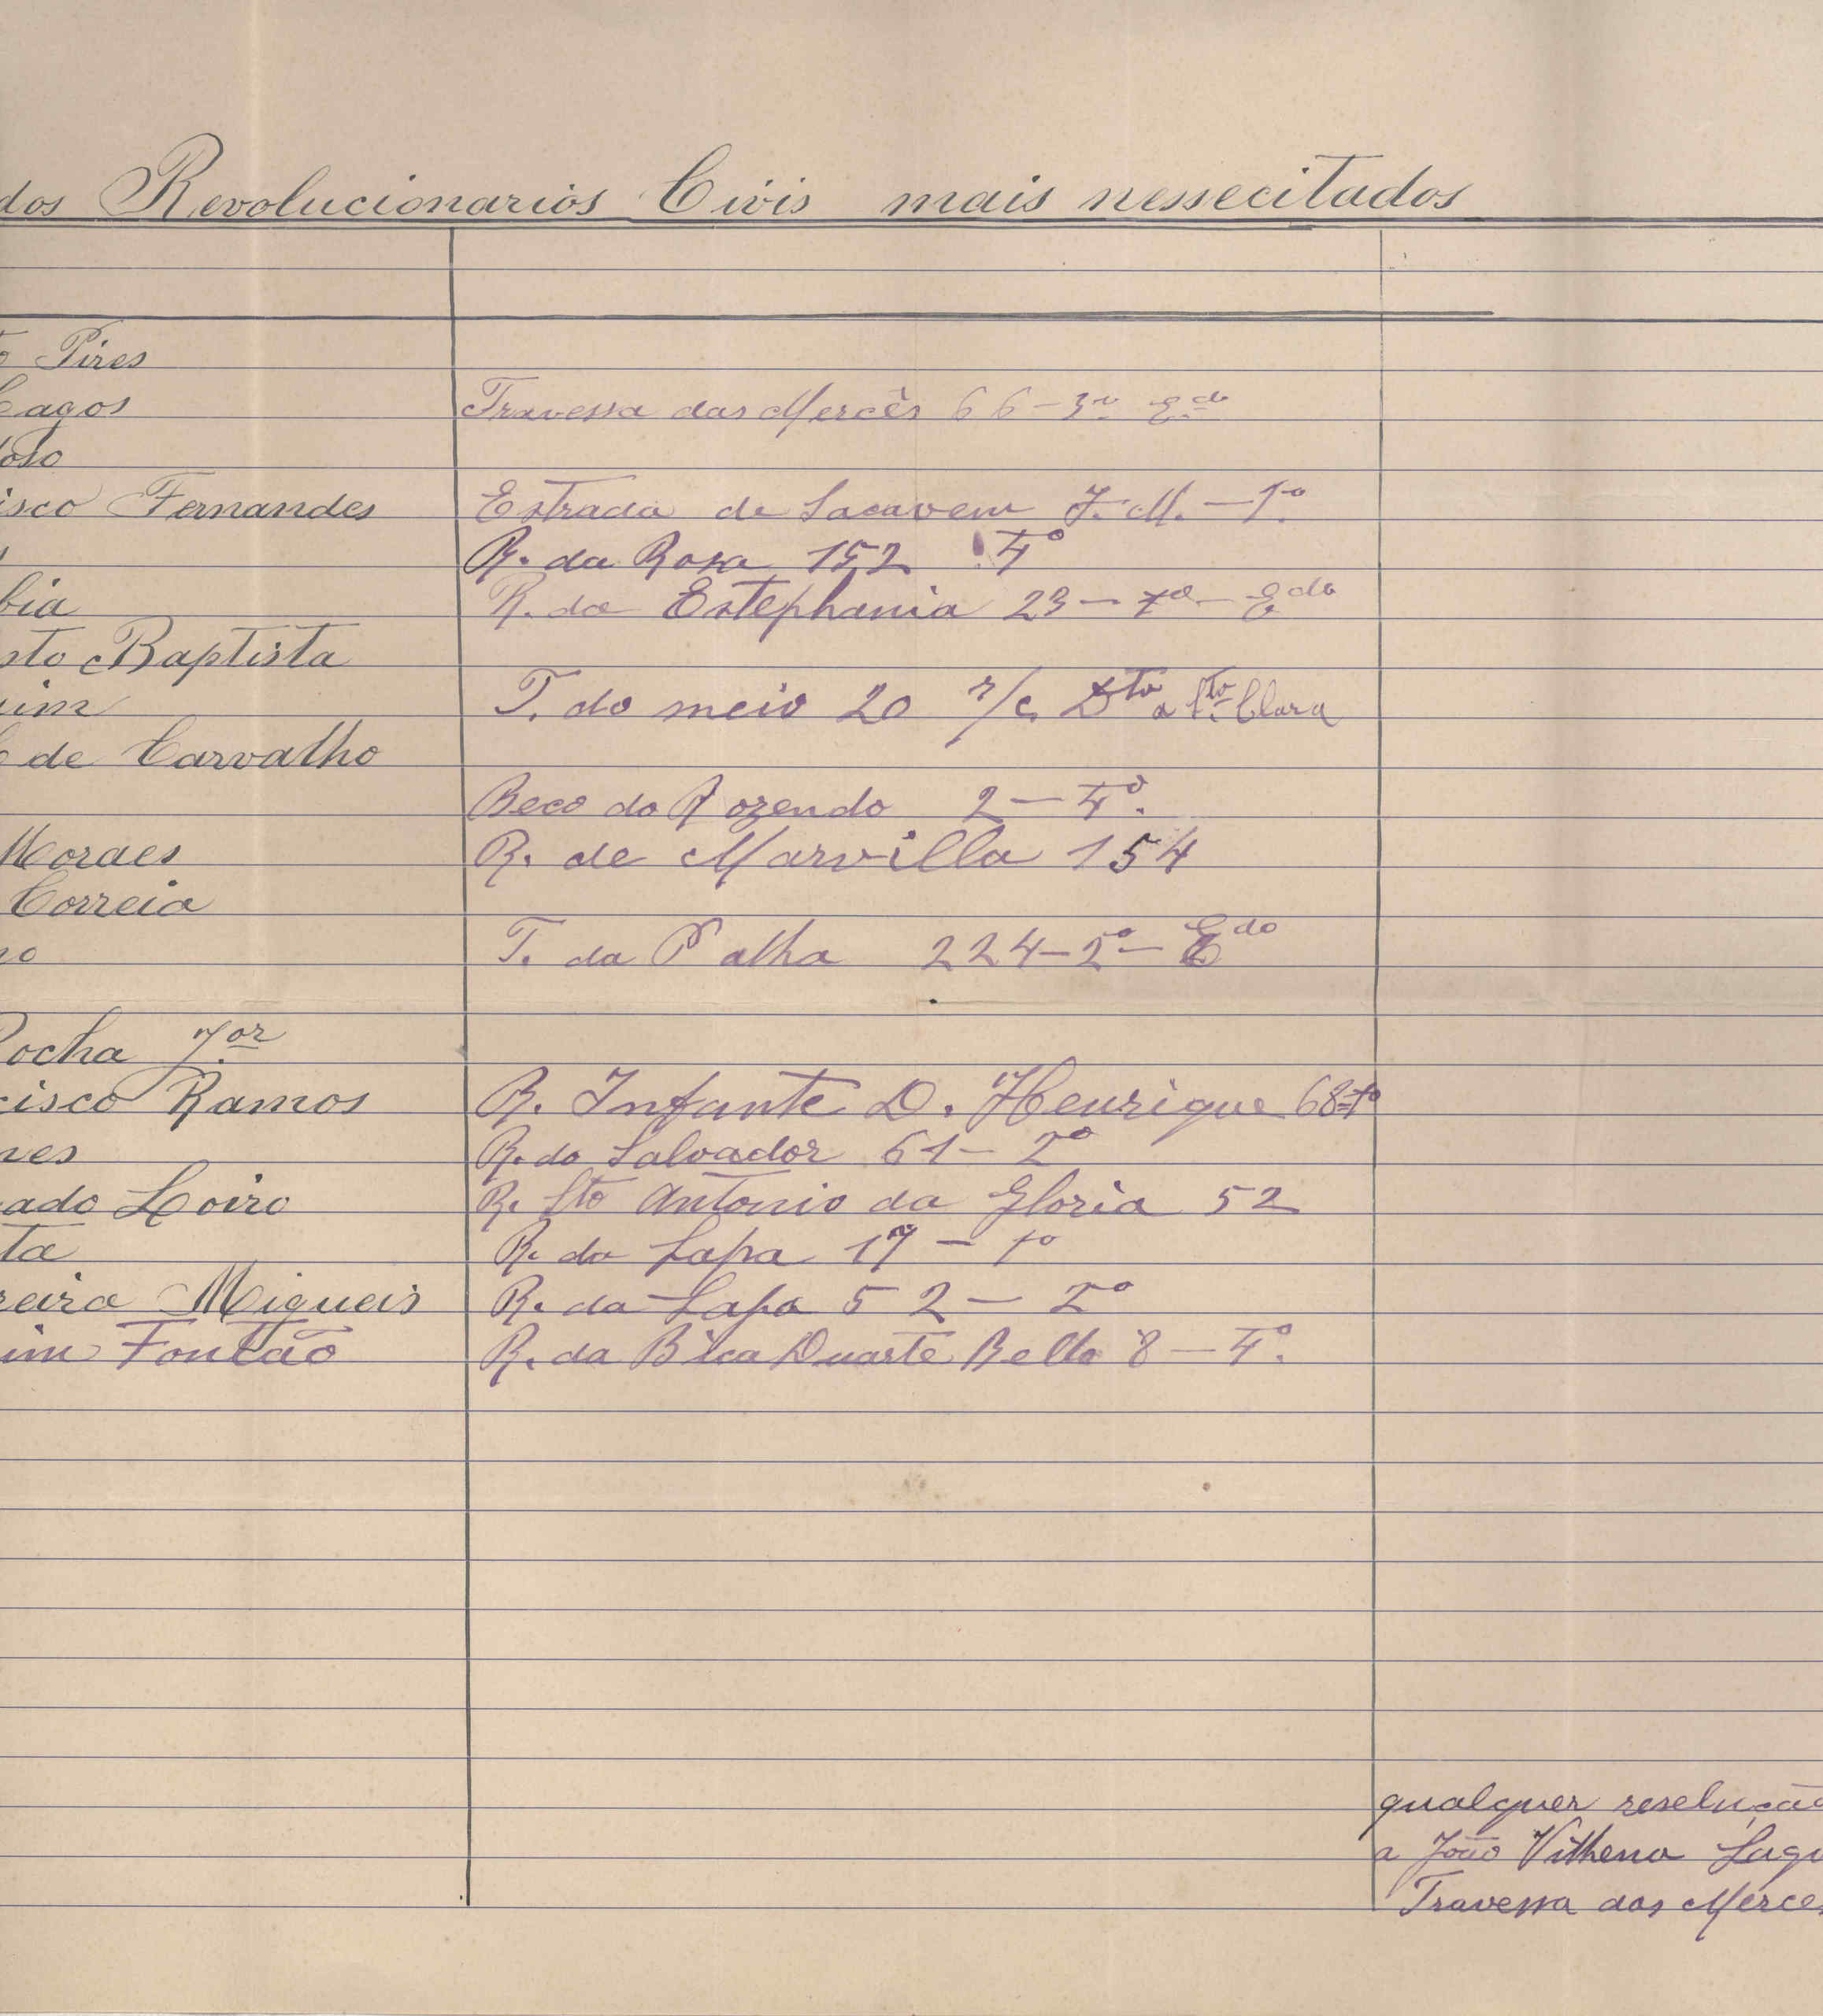 dos Revolucionarios Civis mais nessecitados
Pires
Lagos Travessa das Mercês 66 - 3º E.do
doso
isco Fernandes Estrada de Sacavem J. M. - 1º
R. da Rosa 152 4º
bia R. da Estephania 23 - 7º - E.do
sto Baptista
uim T. do meio 20 r/c Dto a Sta Clara
de Carvalho
Beco do Rozendo 2 - 4º.
Moraes R. de Marvilla 154
Correia
no T. da Palha 224 - 2º - Edo
Rocha Jor
cisco Ramos R. Infante D. Henrique 68-1º
nes R. do Salvador 61 - 2º
ado Loiro R. Sto Antonio da Gloria 52
ta R. da Lapa 17 - 1º
reira Migueis R. da Lapa 52 - 2º
im Fontão R. da Bica Duarte Bello 8 - 4º.
qualquer reselução
a João Vilhena Lagu
Travessa das Merce